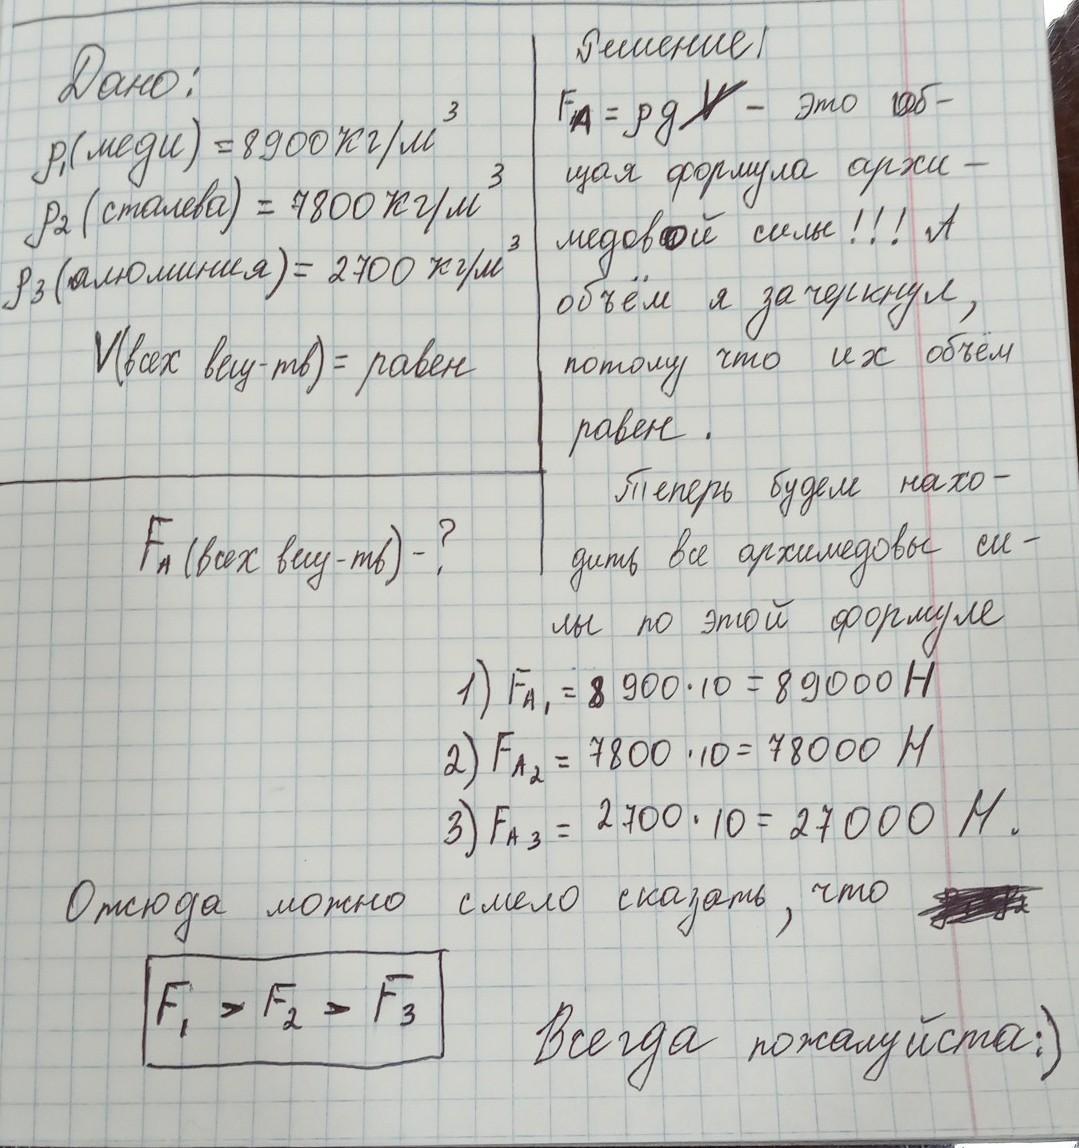 Дано:
ρ₁(меди) = 8900 кг/м³
ρ₂(сталева) = 7800 кг/м³
ρ₃(алюминия) = 2700 кг/м³
V(всех вещ-тв) = равен
F_A (всех вещ-тв) - ?
Решение!
F_A = ρgV - это об-
щая формула архи-
медовой силы!!! А
объём я зачеркнул,
потому что их объём
равен.
Теперь будем нахо-
дить все архимедовы си-
лы по этой формуле
1) F_A₁ = 8900·10 = 89000 Н
2) F_A₂ = 7800·10 = 78000 Н
3) F_A₃ = 2700·10 = 27000 Н.
Отсюда можно смело сказать, что
F₁ > F₂ > F₃
Всегда пожалуйста:)